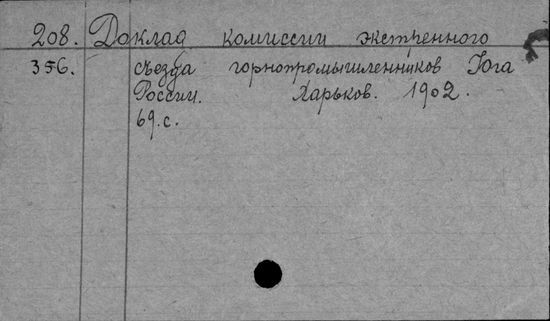 208. Доклад комиссии экстренного
356. съезда горнопромышленников Юга
России. Харьков. 1902.
69.с.